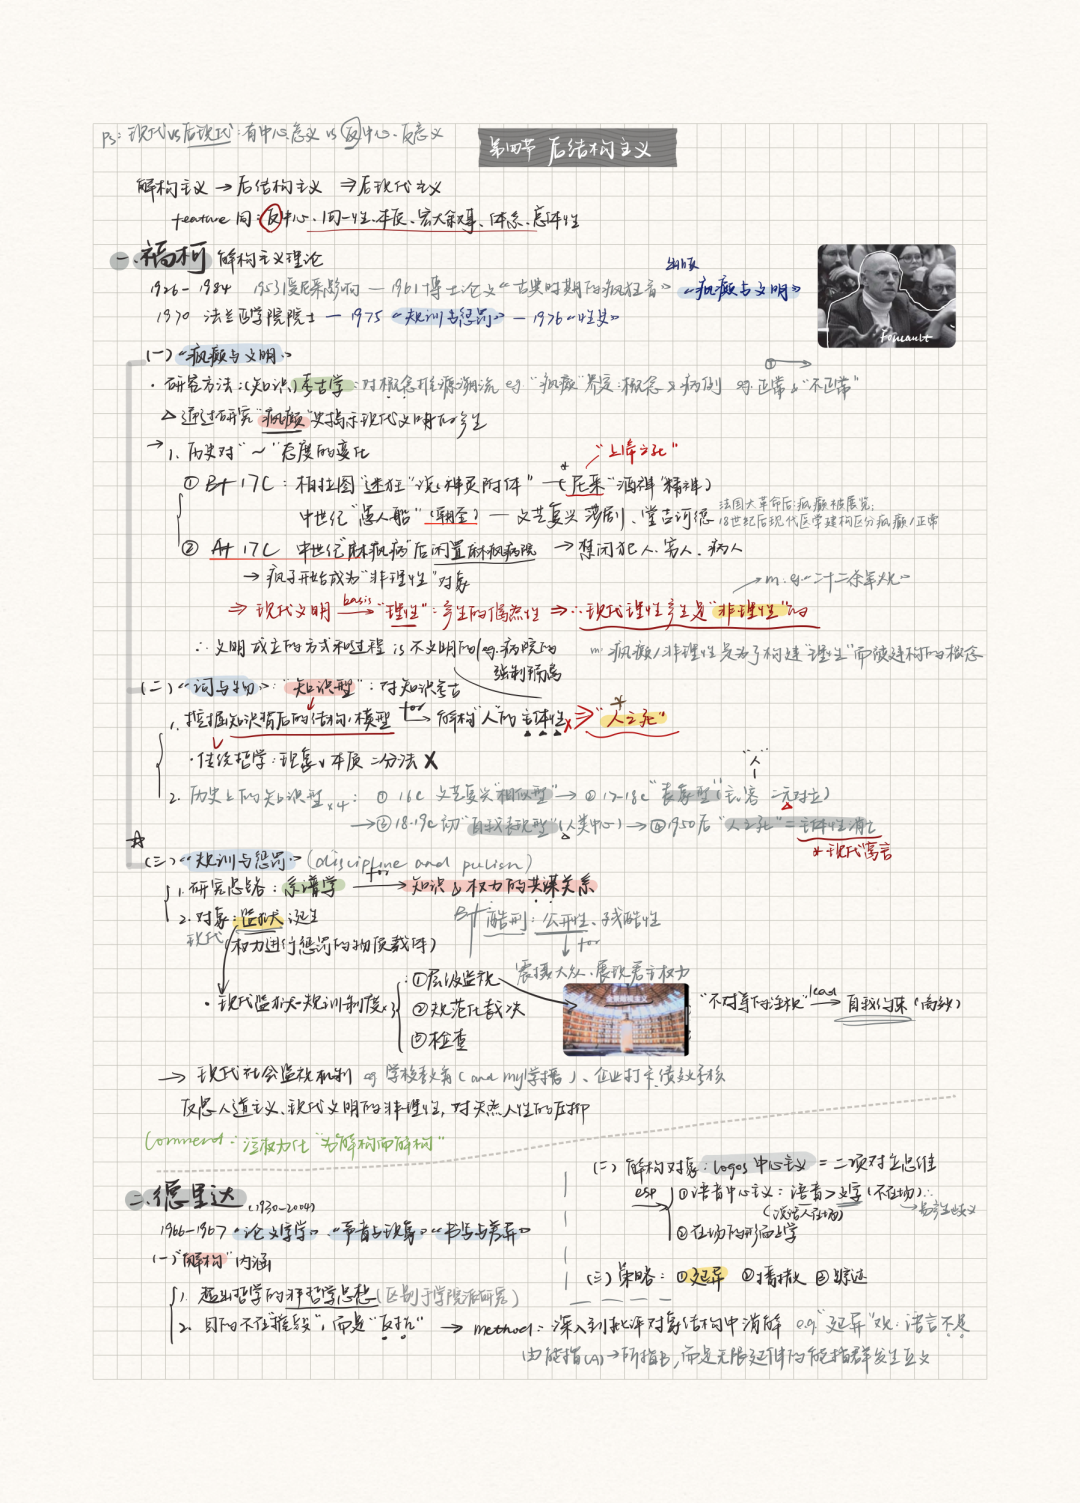 Ps：现代vs后现代：有中心.意义 vs 反中心.反意义
第四节 后结构主义
解构主义 → 后结构主义 ⇒ 后现代主义
feature 同：反中心、同一性、本质、宏大叙事、体系、总体性
一.福柯 解构主义理论
出版
1926-1984 1953 尼采影响 — 1961 博士论文《古典时期的疯狂 》 《疯癫与文明》
1970 法兰西学院院士 — 1975《规训与惩罚》 — 1976《性史》
Foucault
(一)《疯癫与文明》
· 研究方法：(知识)考古学：对概念 溯流 eg "疯癫"界定：概念&病例 eg.正常&"不正常"
△ 通过研究"疯癫"史揭示现代文明的产生
→ 1. 历史对"~"态度的变化
"上帝之死"
① B+ 17C：柏拉图"迷狂"说(神灵附体" — 尼采"酒神"精神)
中世纪"愚人船"(朝圣) — 文艺复兴 莎剧、堂吉诃德
法国大革命后：疯癫被展览；
18世纪后现代医学建构区分疯癫/正常
② A+ 17C 中世纪"麻疯病"后闲置麻疯病院 → 禁闭犯人、穷人、病人
→ 疯子开始成为"非理性"对象
→ m. eg.《二十二条军规》
⇒ 现代文明 basis→ "理性"：产生的偶然性 ⇒ ∴ 现代理性产生是"非理性"的
∴ 文明成立的方式和过程 is 不文明的(eg.病院的
强制隔离
m: 疯癫/非理性是为了构建"理性"而被建构的概念
(二)《词与物》："知识型"：对知识考古
1. 挖掘知识背后的结构、模型 for→ 解构"人"的主体性 ⇒ "人之死"
· 传统哲学：现象&本质 二分法 X
"人"
2. 历史上的知识型×4： ① 16C 文艺复兴"相似型" → ② 17-18C "表象型"(主.客 二元对立)
→ ③ 18-19C初"自我表现型"(人类中心) → ④ 1950后 "人之死" = 主体性消亡
* 现代寓言
(三)《规训与惩罚》(discipline and pulish)
1. 研究思路：系谱学 for→ 知识&权力的共谋关系
2. 对象：监狱诞生
B+ 酷刑：公开性、残酷性
现代 (权力进行惩罚的物质载体)
↓ for
震摄大众、展现君主权力
· 现代监狱 — 规训制度×3
①层级监视
②规范化裁决
③检查
"不对等下的注视" lead→ 自我约束(高效)
→ 现代社会监视机制 eg 学校教育(and my学播)、企业打卡绩效考核
反思人道主义、现代文明的非理性，对天然人性的压抑
Comment："泛权力化" "为解构而解构"
二.德里达 (1930-2004)
1966-1967《论文字学》《声音与现象》《书写与差异》
(一)"解构"内涵
1. 超出哲学的非哲学思想(区别于学院派研究)
2. 目的不在"摧毁"，而是"反抗" → method：深入到批评对象结构中消解 eg "延异"观：语言不是
由能指(A)→所指B，而是无限延伸的能指群发生互文
(二) 解构对象：Logos中心主义 = 二项对立思维
esp ①语音中心主义：语音>文字(不在场)
(说话人在场)
②在场的形而上学
(三) 策略：①延异 ②播撒 ③踪迹